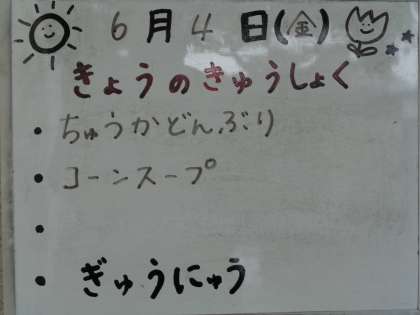 6月4日(金)
きょうのきゅうしょく
・ちゅうかどんぶり
・コーンスープ
・
・ぎゅうにゅう